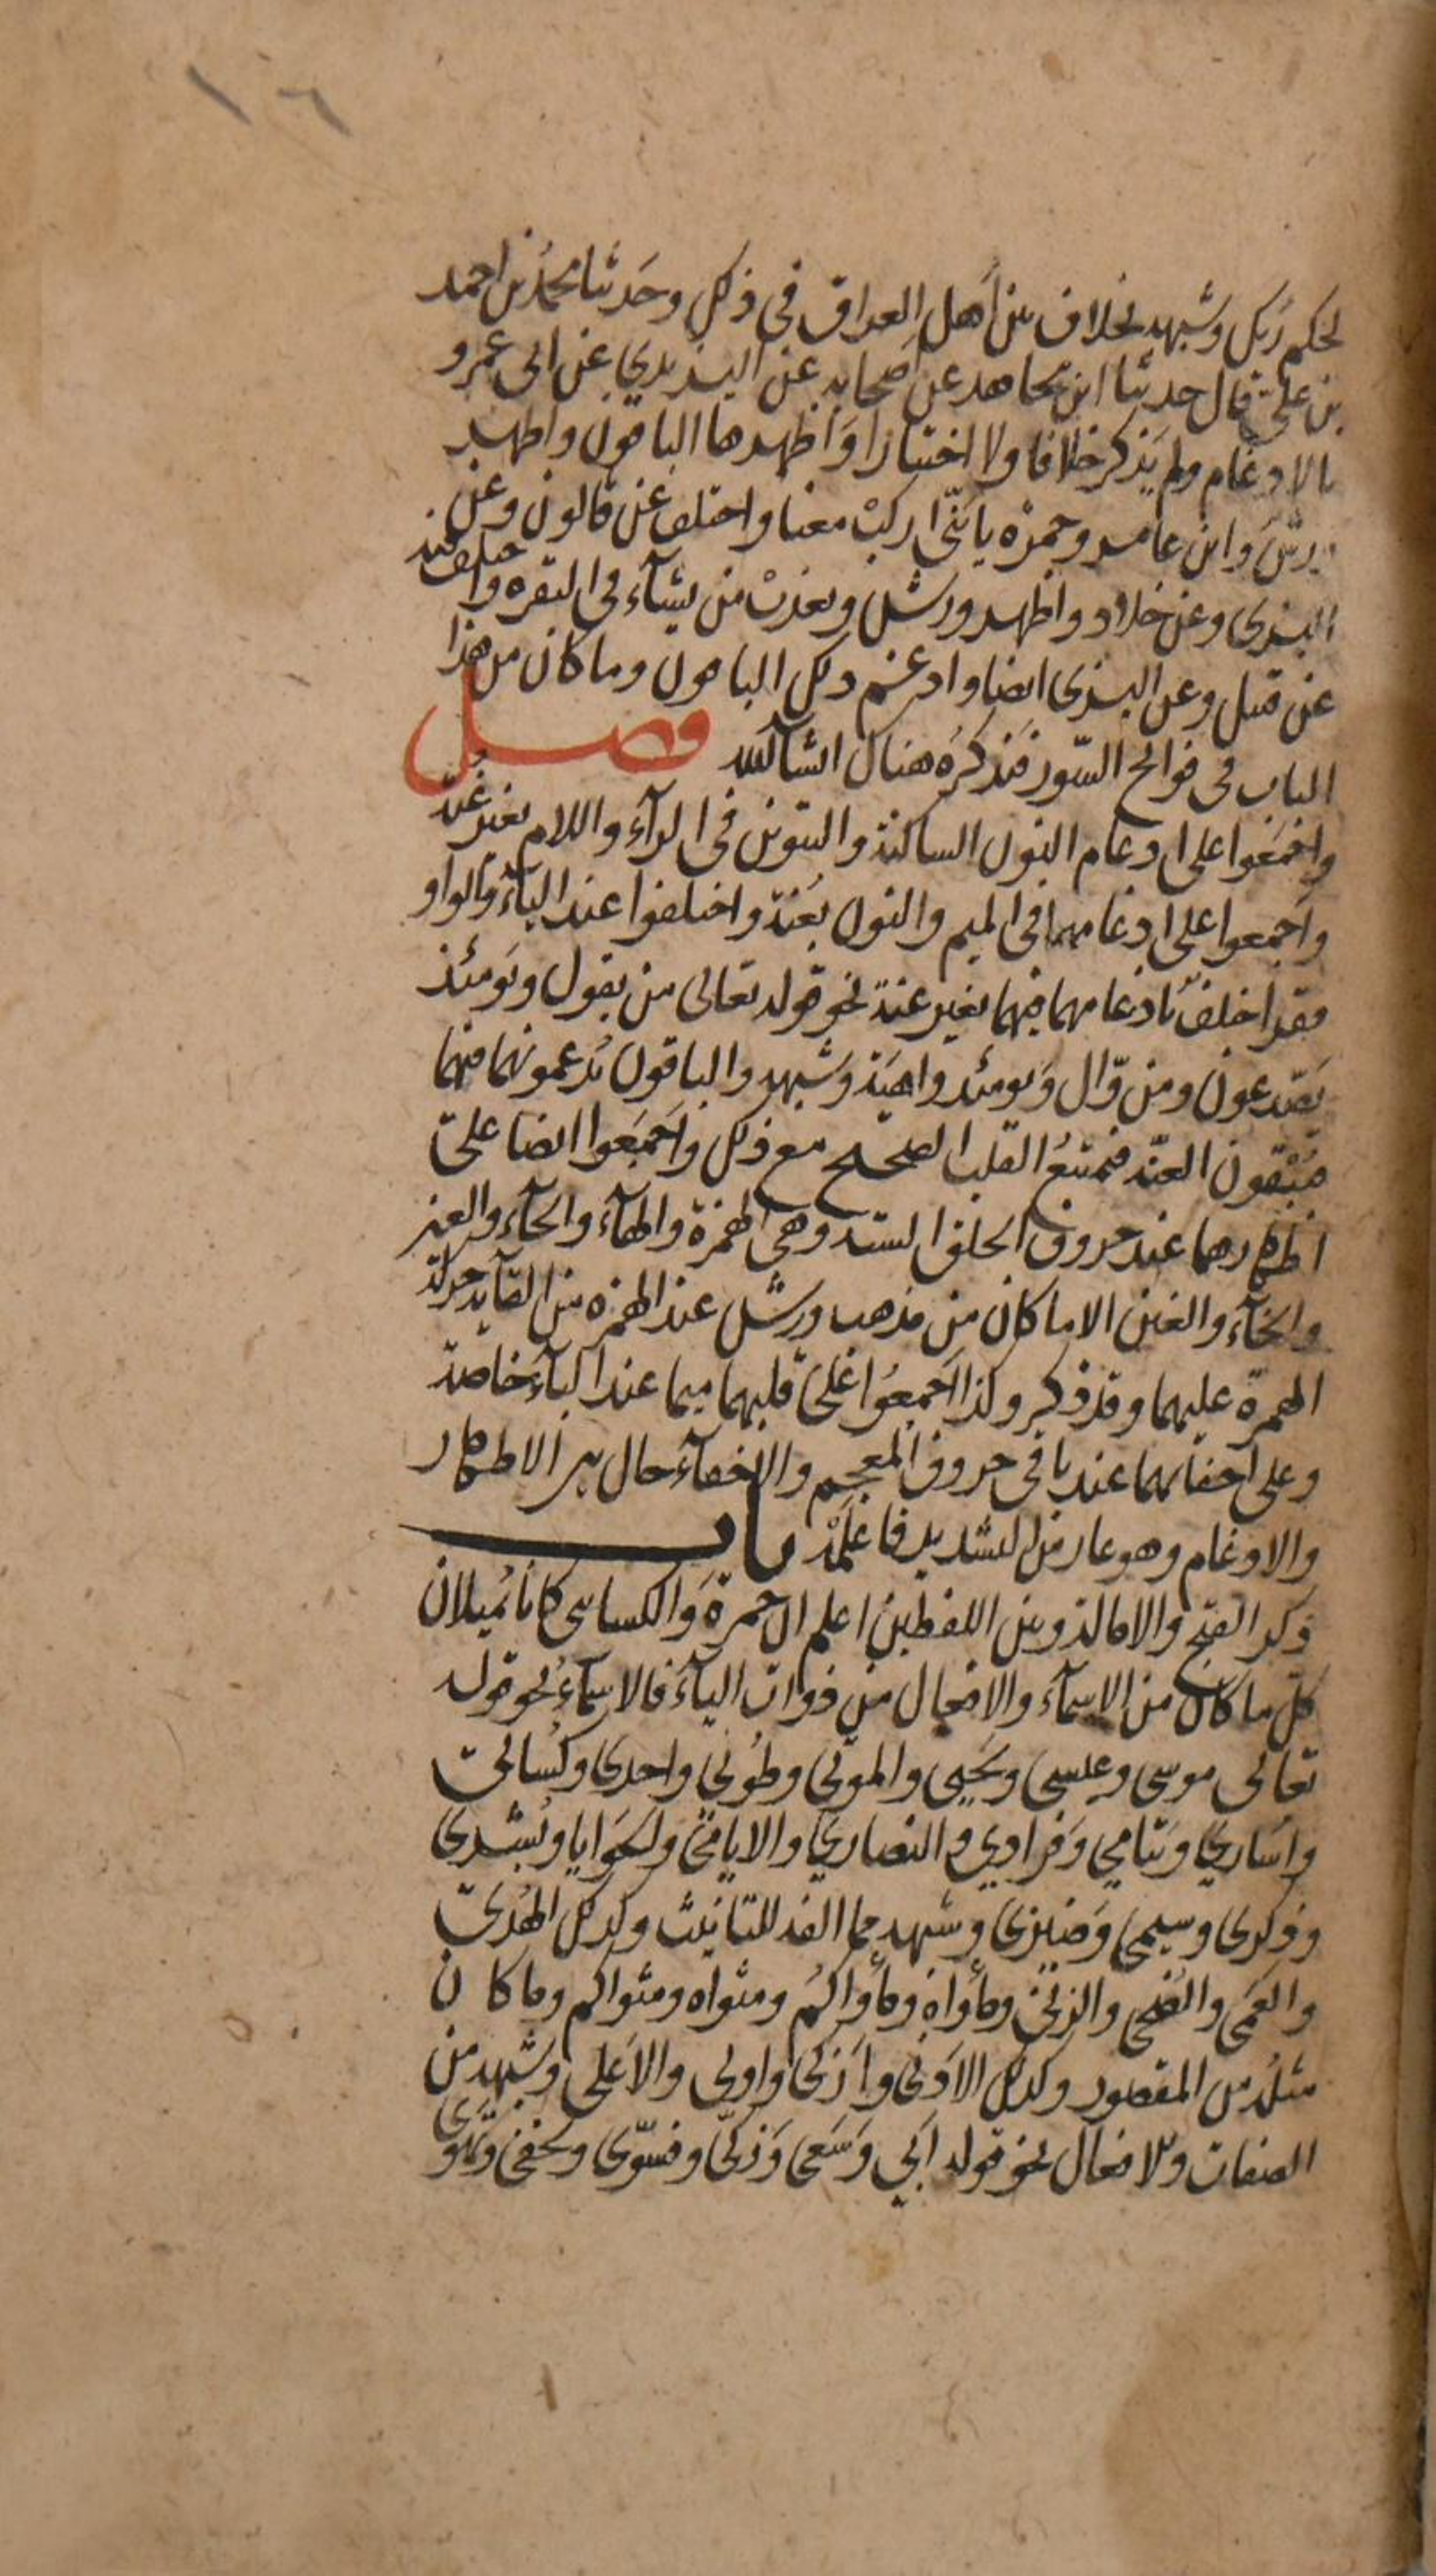 ١٦
لحكم ربك وشبهه بخلاف بين أهل العراق في ذلك وحدثنا محمد بن احمد
بن علي قال حدثنا ابن مجاهد عن أصحابه عن اليزيدي عن ابي عمرو
بالادغام ولم يذكر خلافا ولا اختيارا واظهرها الباقون واظهر
ورش وابن عامر وحمزة يا بني اركب معنا واختلف عن قالون وعن
البزي وعن خلاد واظهر ورش ويعذب من يشآء في البقره واختلف فيه
عن قنبل وعن البزي ايضا وادغم ذلك الباقون وما كان من هذا
الباب في فواتح السور فنذكره هناك ان شآء الله فصل
واجمعوا على ادغام النون الساكنة والتنوين في الرآء واللام بغير غنة
واجمعوا على ادغامهما في الميم والنون بغنة واختلفوا عند اليآء والواو
فقرا خلف بادغامهما فيهما بغير غنة نحو قوله تعالى من يقول ويومئذ
يصدعون ومن وال ويومئذ واهية وشبهه والباقون يدغمونهما فيهما
فيبقون الغنة فيمتنع القلب الصحيح مع ذلك واجمعوا ايضا على
اظهارهما عند حروف الحلق الستة وهي الهمزة والهآء والحآء والعين
والخآء والغين الا ما كان من مذهب ورش عند الهمزه من القآيه حركة
الهمزة عليهما وقد ذكر وكذا اجمعوا على قلبهما ميما عند البآء خاصة
وعلى اخفائهما عند باقي حروف المعجم والاخفآء حال بين الاظهار
والادغام وهو عار من التشديد فاعلمه باب
ذكر الفتح والامالة وبين اللفظين اعلم ان حمزة والكسائي كانا يميلان
كل ما كان من الاسمآء والافعال من ذوات اليآء فالاسمآء نحو قوله
تعالى موسى وعيسى ويحيى والموتى وطوبى واحدى وكسالى
واسارى ويتامى وفرادى والنصارى والايامى والحوايا وبشرى
وذكرى وسيمى وضيزى وشبهه مما الفه للتانيث وكذلك الهدى
والعمى والضحى والزنى ومأواه ومأواكم ومثواه ومثواكم وما كان
مثله من المقصور وكذلك الادنى وازكى واولى والاعلى وشبهه من
الصفات والافعال نحو قوله ابى وسعى وزكى وفسوى ويخفى وتهوى